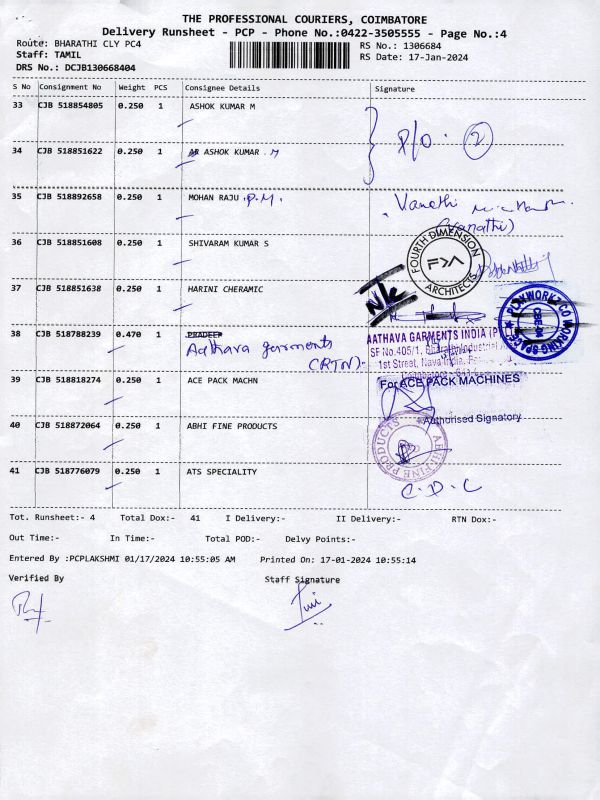 THE PROFESSIONAL COURIERS, COIMBATORE
Delivery Runsheet - PCP - Phone No.:0422-3505555 - Page No.:4
Route: BHARATHI CLY PC4 RS No.: 1306684
Staff: TAMIL RS Date: 17-Jan-2024
DRS No.: DCJB130668404
S No Consignment No Weight PCS Consignee Details Signature
33 CJB 518854805 0.250 1 ASHOK KUMAR M
P/O. 2
34 CJB 518851622 0.250 1 AR ASHOK KUMAR . M
35 CJB 518892658 0.250 1 MOHAN RAJU .P.M. Vanathi
(Vanathi)
36 CJB 518851608 0.250 1 SHIVARAM KUMAR S FOURTH DIMENSION ARCHITECTS
37 CJB 518851638 0.250 1 HARINI CHERAMIC
WORKING SPACE
38 CJB 518788239 0.470 1 PRADEEP AATHAVA GARMENTS INDIA
Aathava garments SF No.405/1,
(RTN) 1st Street,
39 CJB 518818274 0.250 1 ACE PACK MACHN For ACE PACK MACHINES
Authorised Signatory
40 CJB 518872064 0.250 1 ABHI FINE PRODUCTS ABHI FINE PRODUCTS
41 CJB 518776079 0.250 1 ATS SPECIALITY C.D.C
Tot. Runsheet:- 4 Total Dox:- 41 I Delivery:- II Delivery:- RTN Dox:-
Out Time:- In Time:- Total POD:- Delvy Points:-
Entered By :PCPLAKSHMI 01/17/2024 10:55:05 AM Printed On: 17-01-2024 10:55:14
Verified By Staff Signature